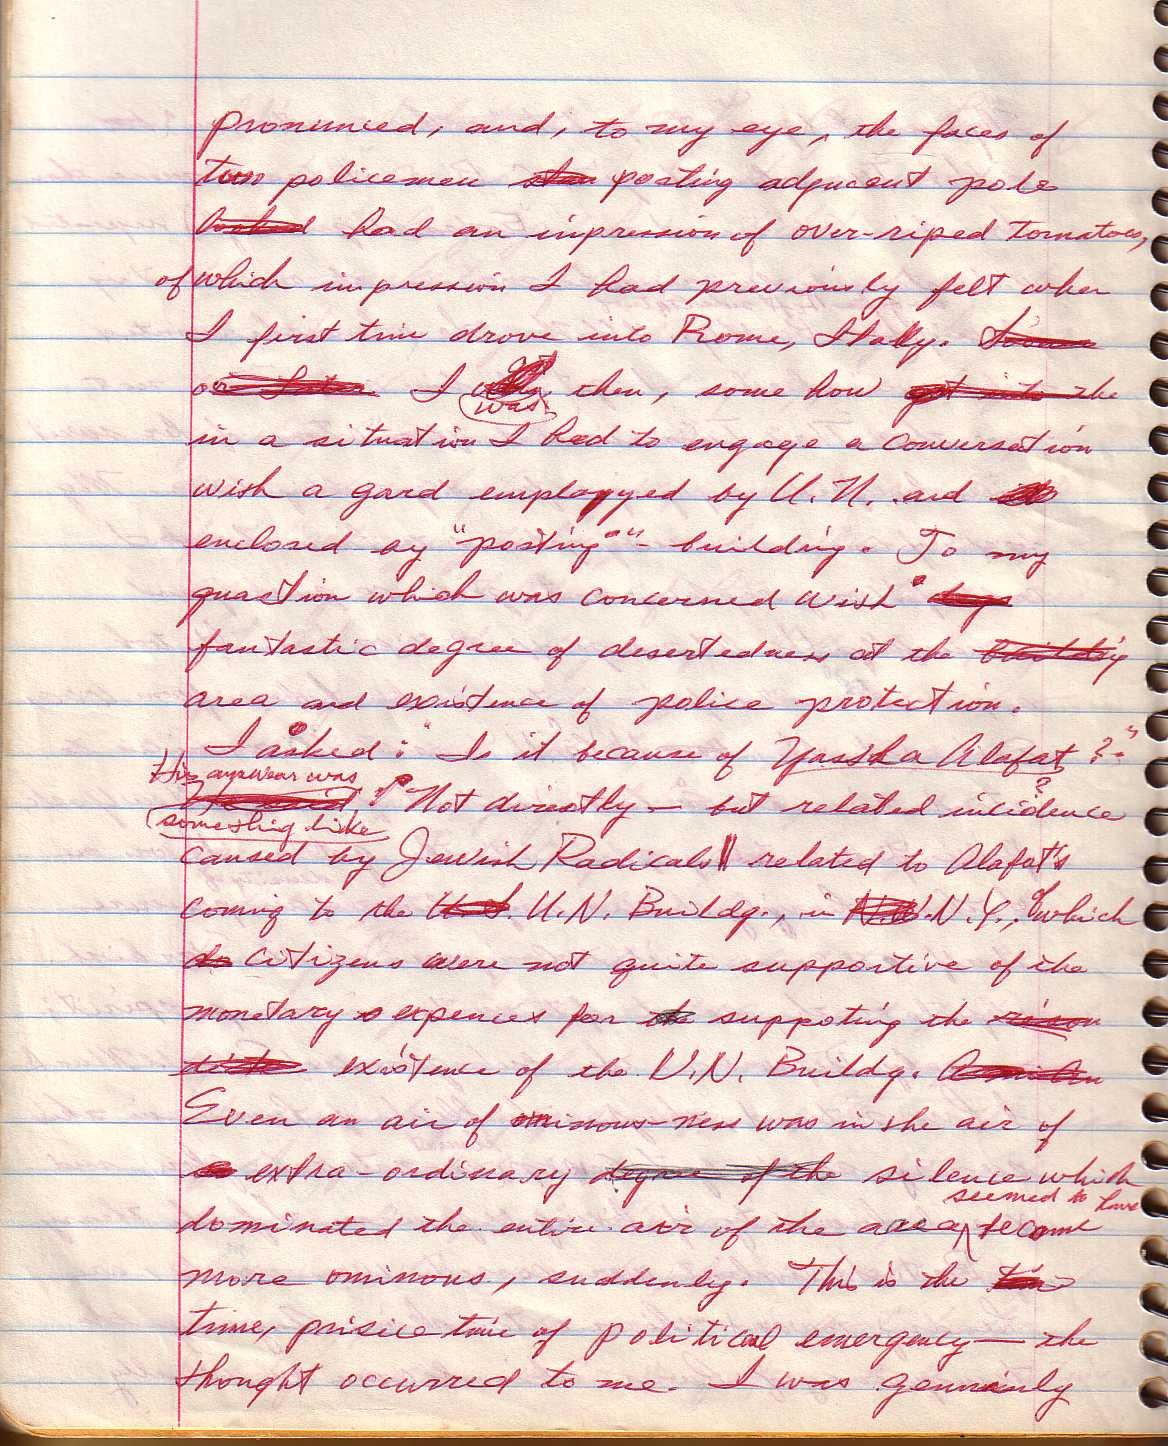 pronunced, and, to my eye, the faces of
two policemen posting adjucent pole
had an inpression of over-riped Tomatoes,
of which impression I had previously felt when
I first time drove into Rome, Itally.
I was then, some how the
in a situation I had to engage a conversation
wish a gard employyed by U.N. and
enclosed ay "posting" - building. To my
quastion which was concerned wish
fantastic degree of desertedness at the
area and existence of police protection.
I asked: "Is it because of Yassha Alafat?"
His answear was
something like "Not directly — but related incidence
caused by Jewish Radicals related to Alafat's
coming to the U.N. Buildg., in N.Y., of which
citizens were not quite supportive of the
monetary expences for supporting the
existence of the U.N. Buildg.
Even an air of ominous-ness was in the air of
extra-ordinary silence which
dominated the entire air of the area seemed to have become
more ominous, suddenly. This is the
time, prisice time of political emergency — the
thought occurred to me. I was genuinly